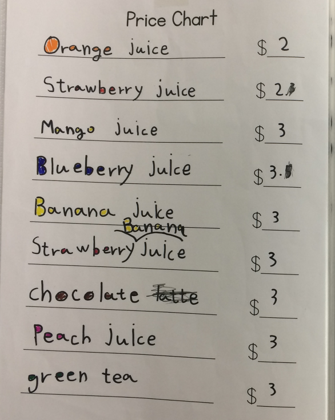 Price Chart
Orange juice $ 2
Strawberry juice $ 2.
Mango juice $ 3
Blueberry juice $ 3.
Banana juice $ 3
Banana
Strawberry juice $ 3
chocolate $ 3
Peach juice $ 3
green tea $ 3